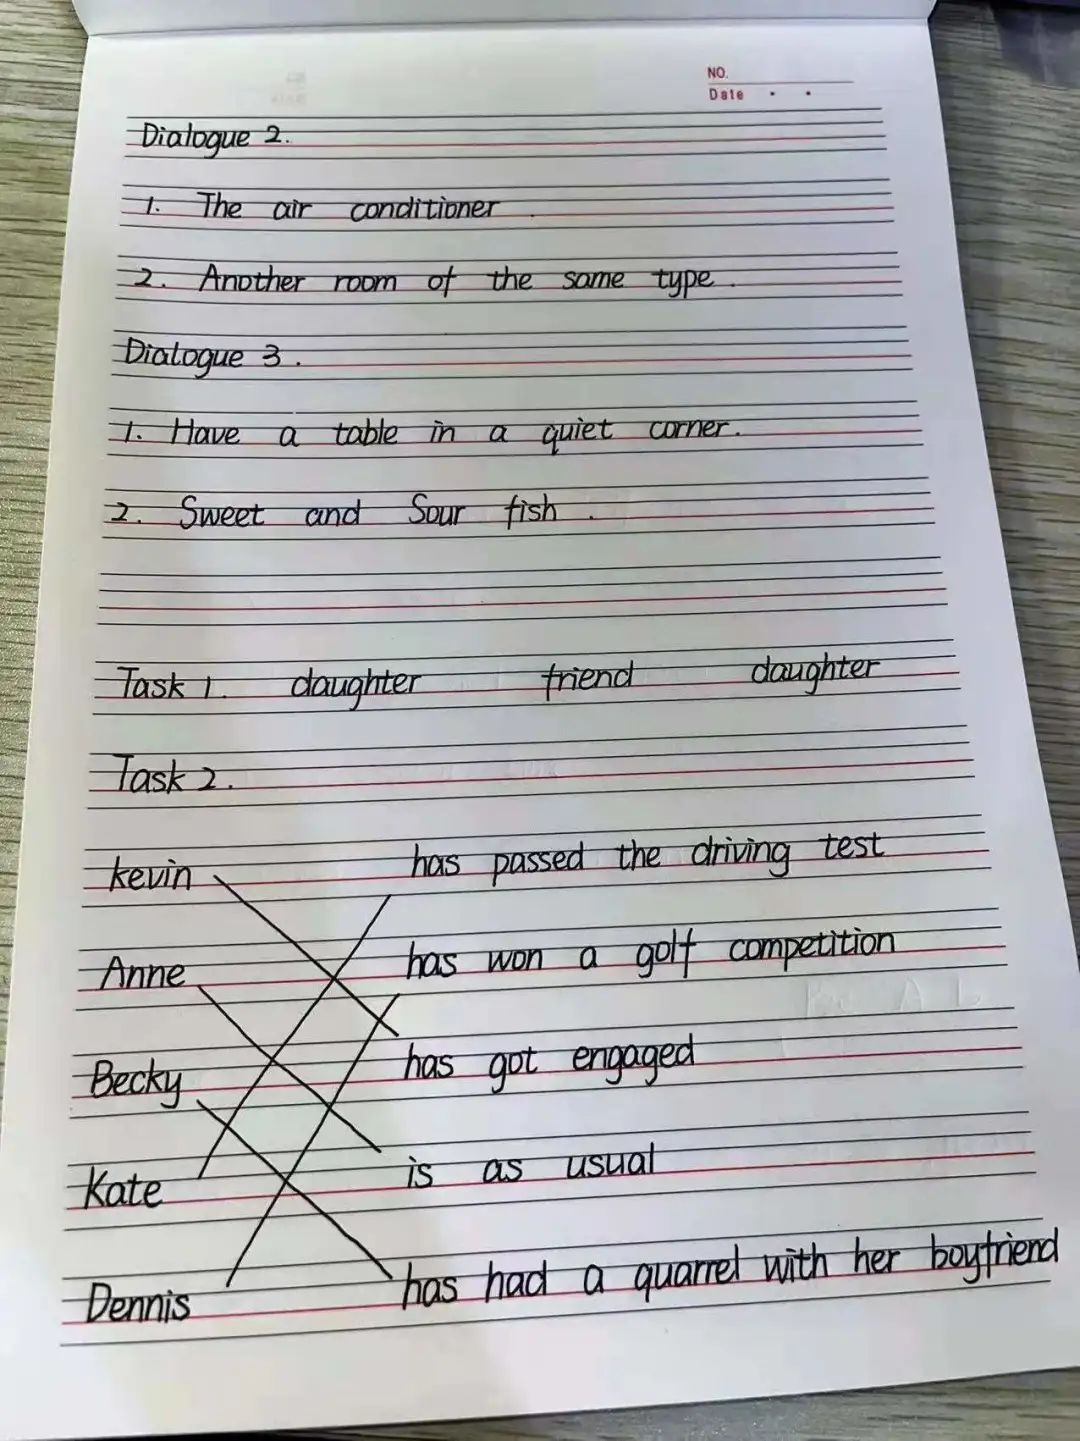 NO.
Date
Dialogue 2.
1. The air conditioner.
2. Another room of the same type.
Dialogue 3.
1. Have a table in a quiet corner.
2. Sweet and Sour fish.
Task 1. daughter friend daughter
Task 2.
kevin has passed the driving test
Anne has won a golf competition
Becky has got engaged
Kate is as usual
Dennis has had a quarrel with her boyfriend